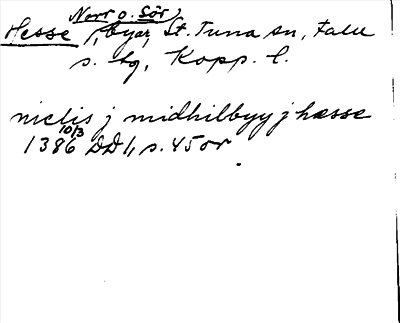 Norr o. Sör,
Hesse, byar, St. Tuna sn, Falu
s. tg, Kopp. l.
niclis j midhilbyy j hæsse
1386 10/3 DD 1, s. 45 or